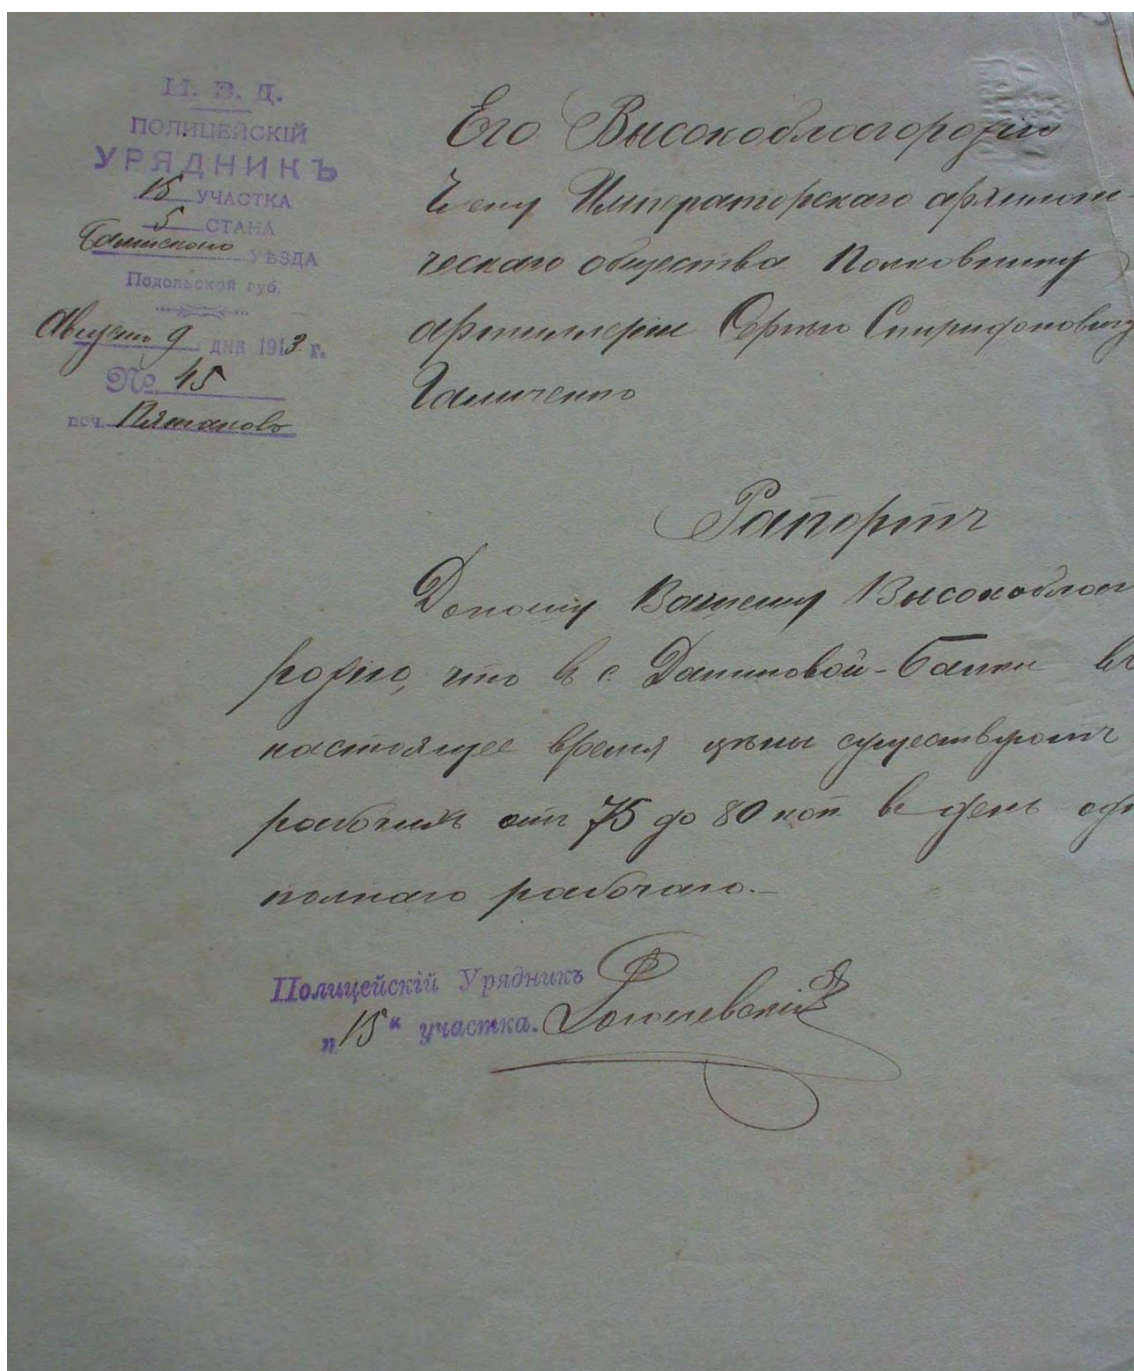 М. В. Д.
ПОЛИЦЕЙСКІЙ
УРЯДНИКЪ
15 УЧАСТКА
5 СТАНА
УѢЗДА
Подольской губ.
Августа 9 дня 1913 г.
№ 45
Его Высокоблагородію
Члену Императорскаго археологи-
ческаго общества Полковнику
артиллеріи Сергѣю Спиридоновичу
Гамченко
Рапортъ
Доношу Вашему Высокоблаго
родію, что в с. Даниловой-Балки въ
настоящее время цѣны существуютъ
рабочихъ отъ 75 до 80 коп в день
полнаго рабочаго.—
Полицейскій Урядникъ
„15“ участка.